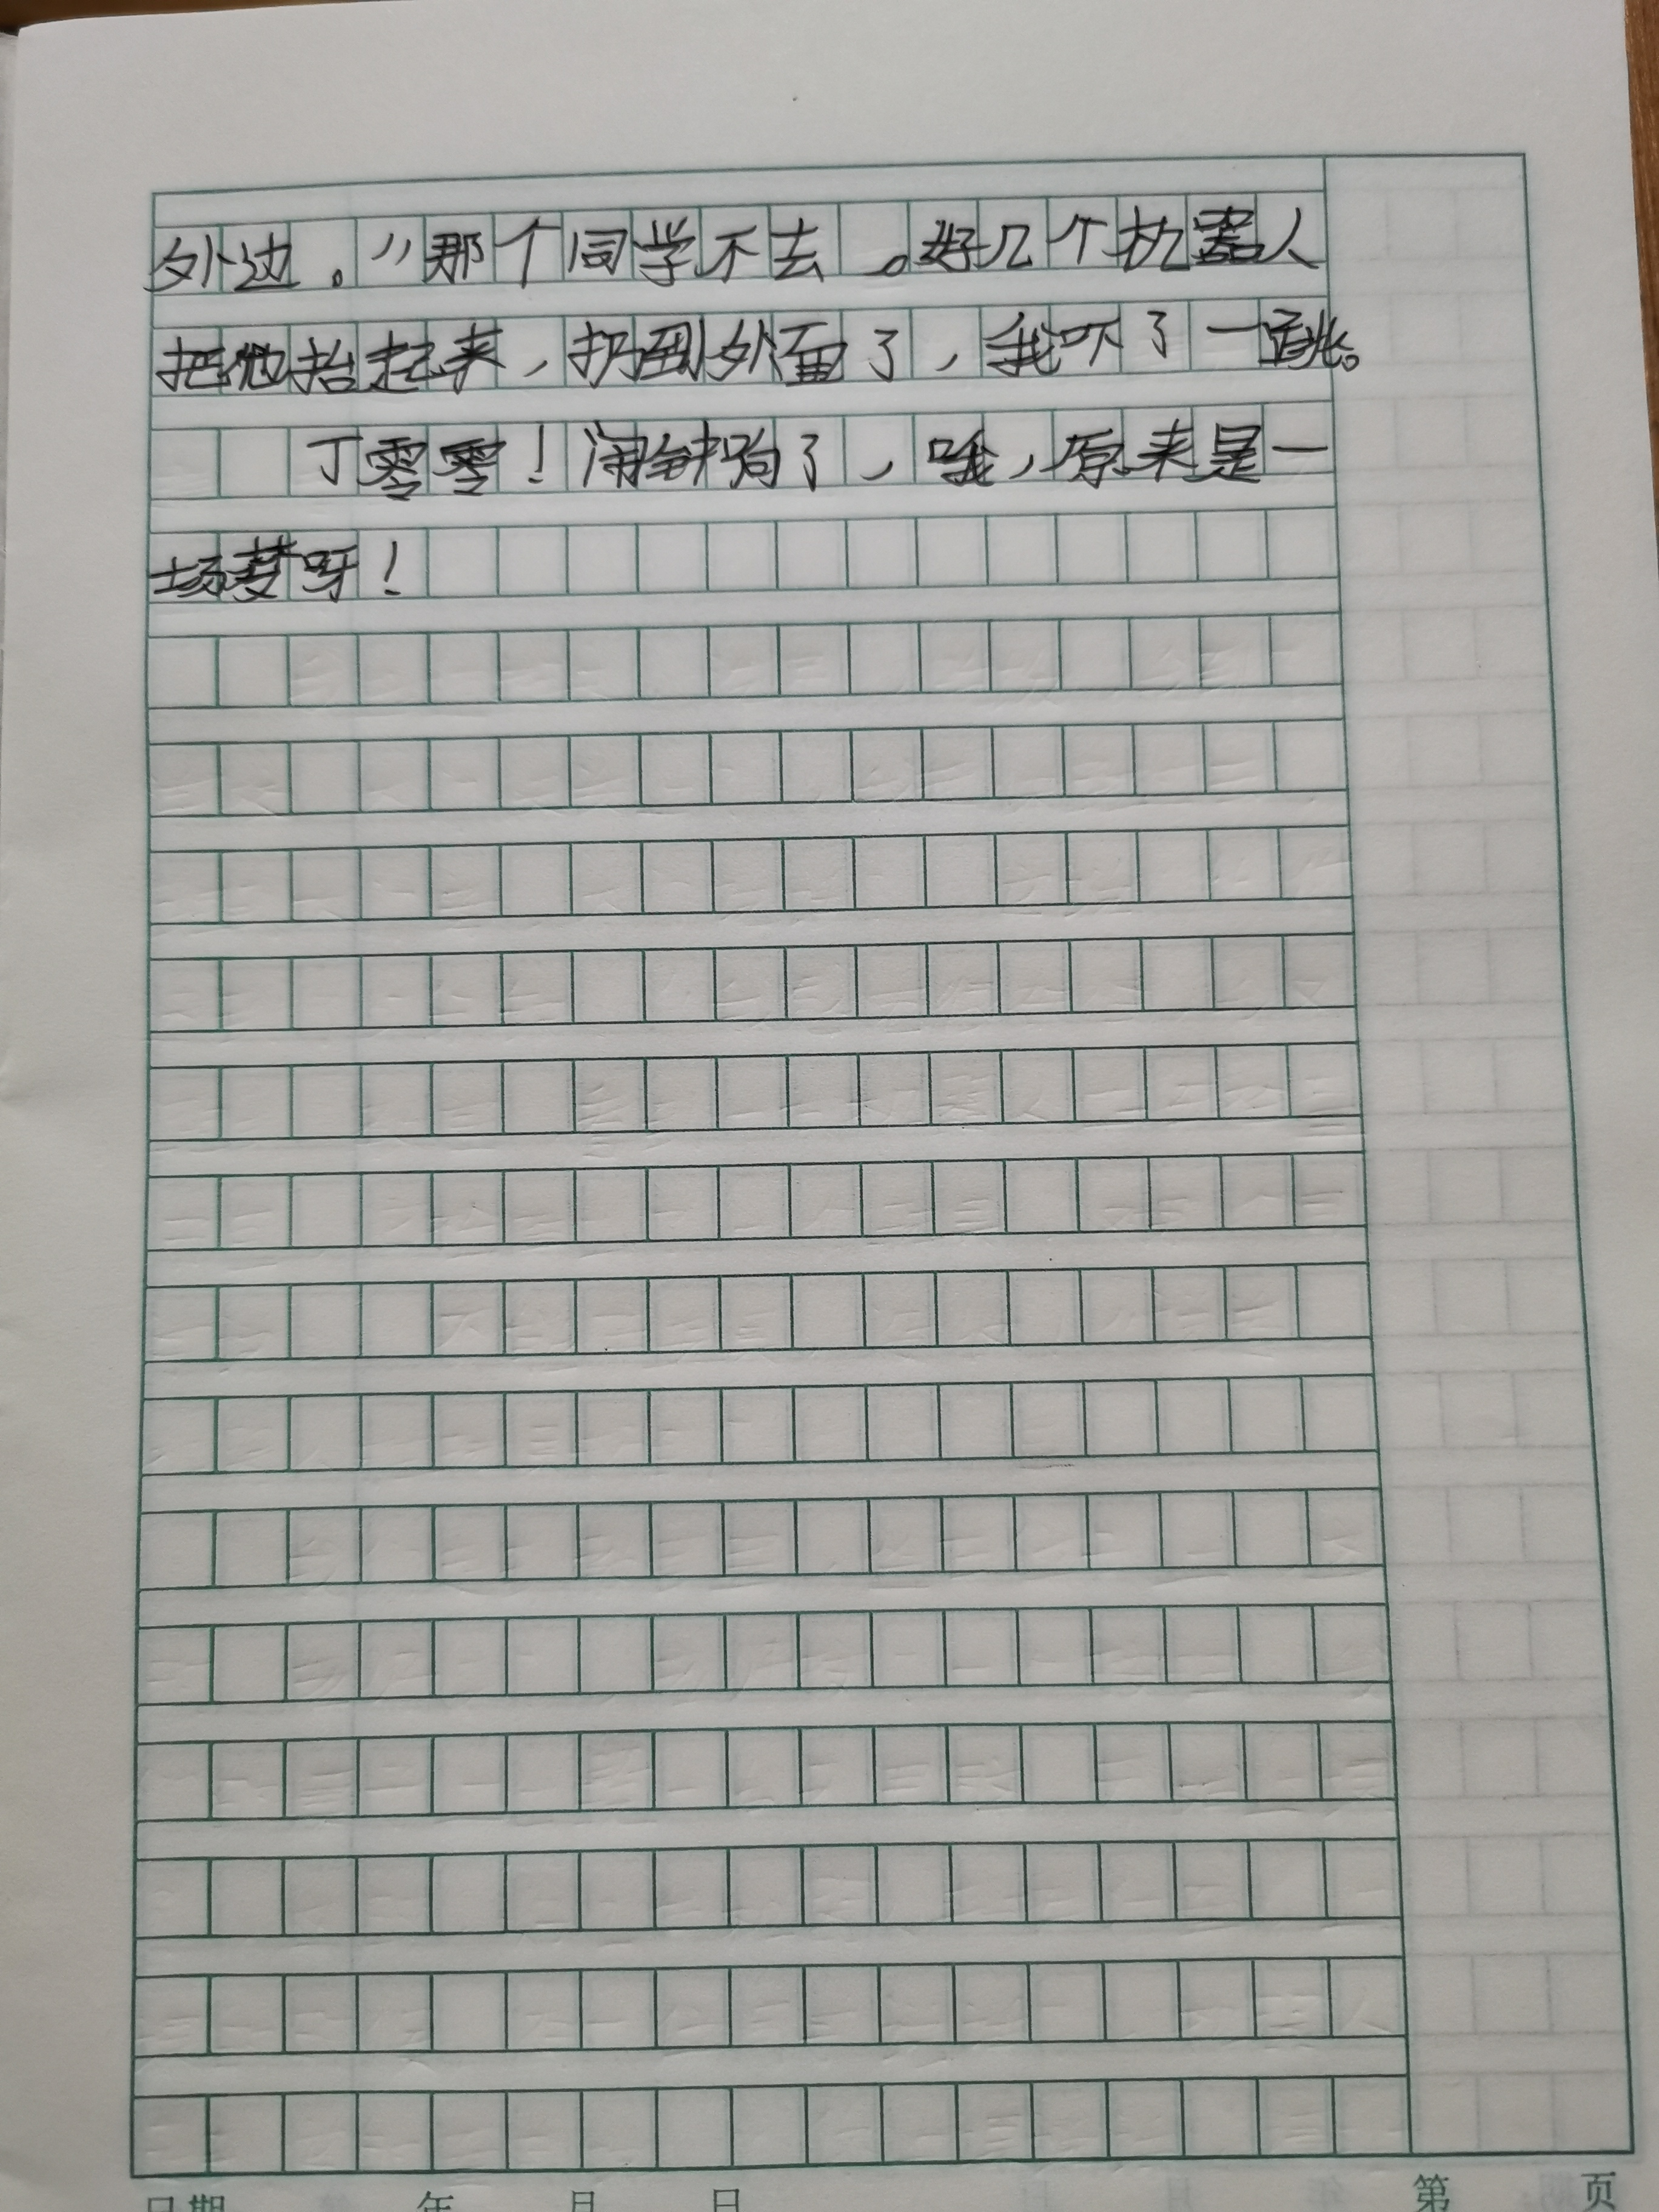 外边。”那个同学不去。好几个机器人
把他抬起来，扔到外面了，我吓了一跳。
丁零零！闹钟响了，哦，原来是一
场梦呀！
日期 年 月 日 第 页